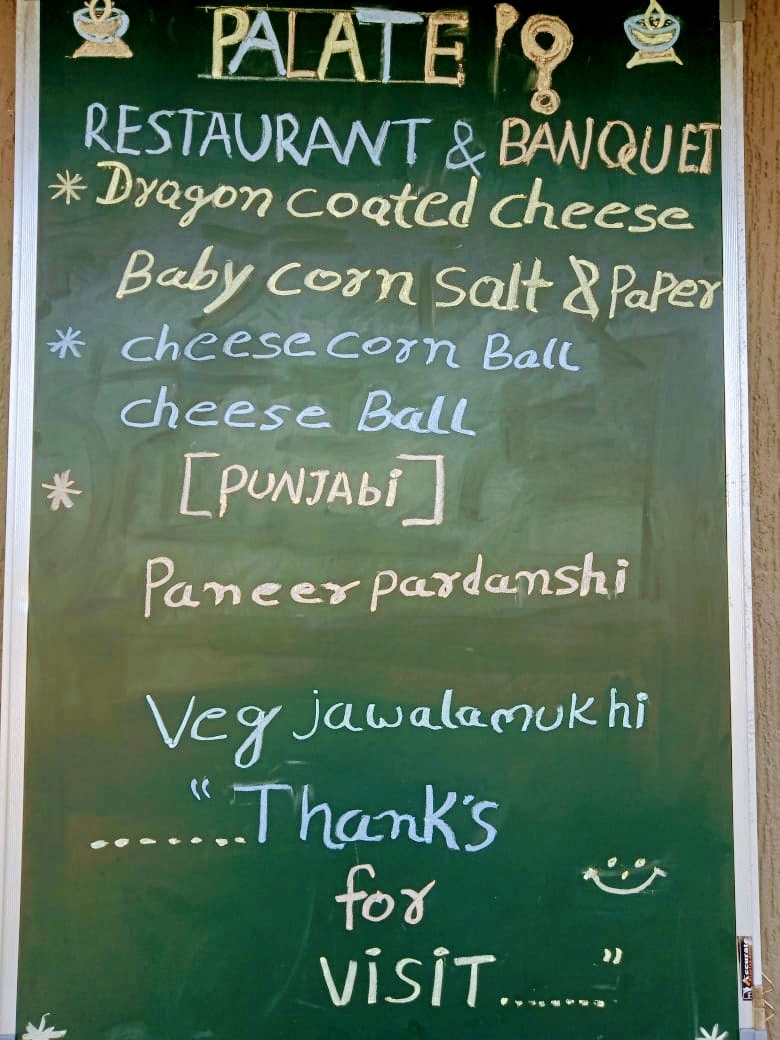 PALATE
RESTAURANT & BANQUET
* Dragon coated cheese
Baby corn salt & PaPer
* cheese corn Ball
cheese Ball
* [PUNJAbi]
Paneer pardanshi
Veg jawalamukhi
"
.......Thank's
for
VISIT........"
Accurate